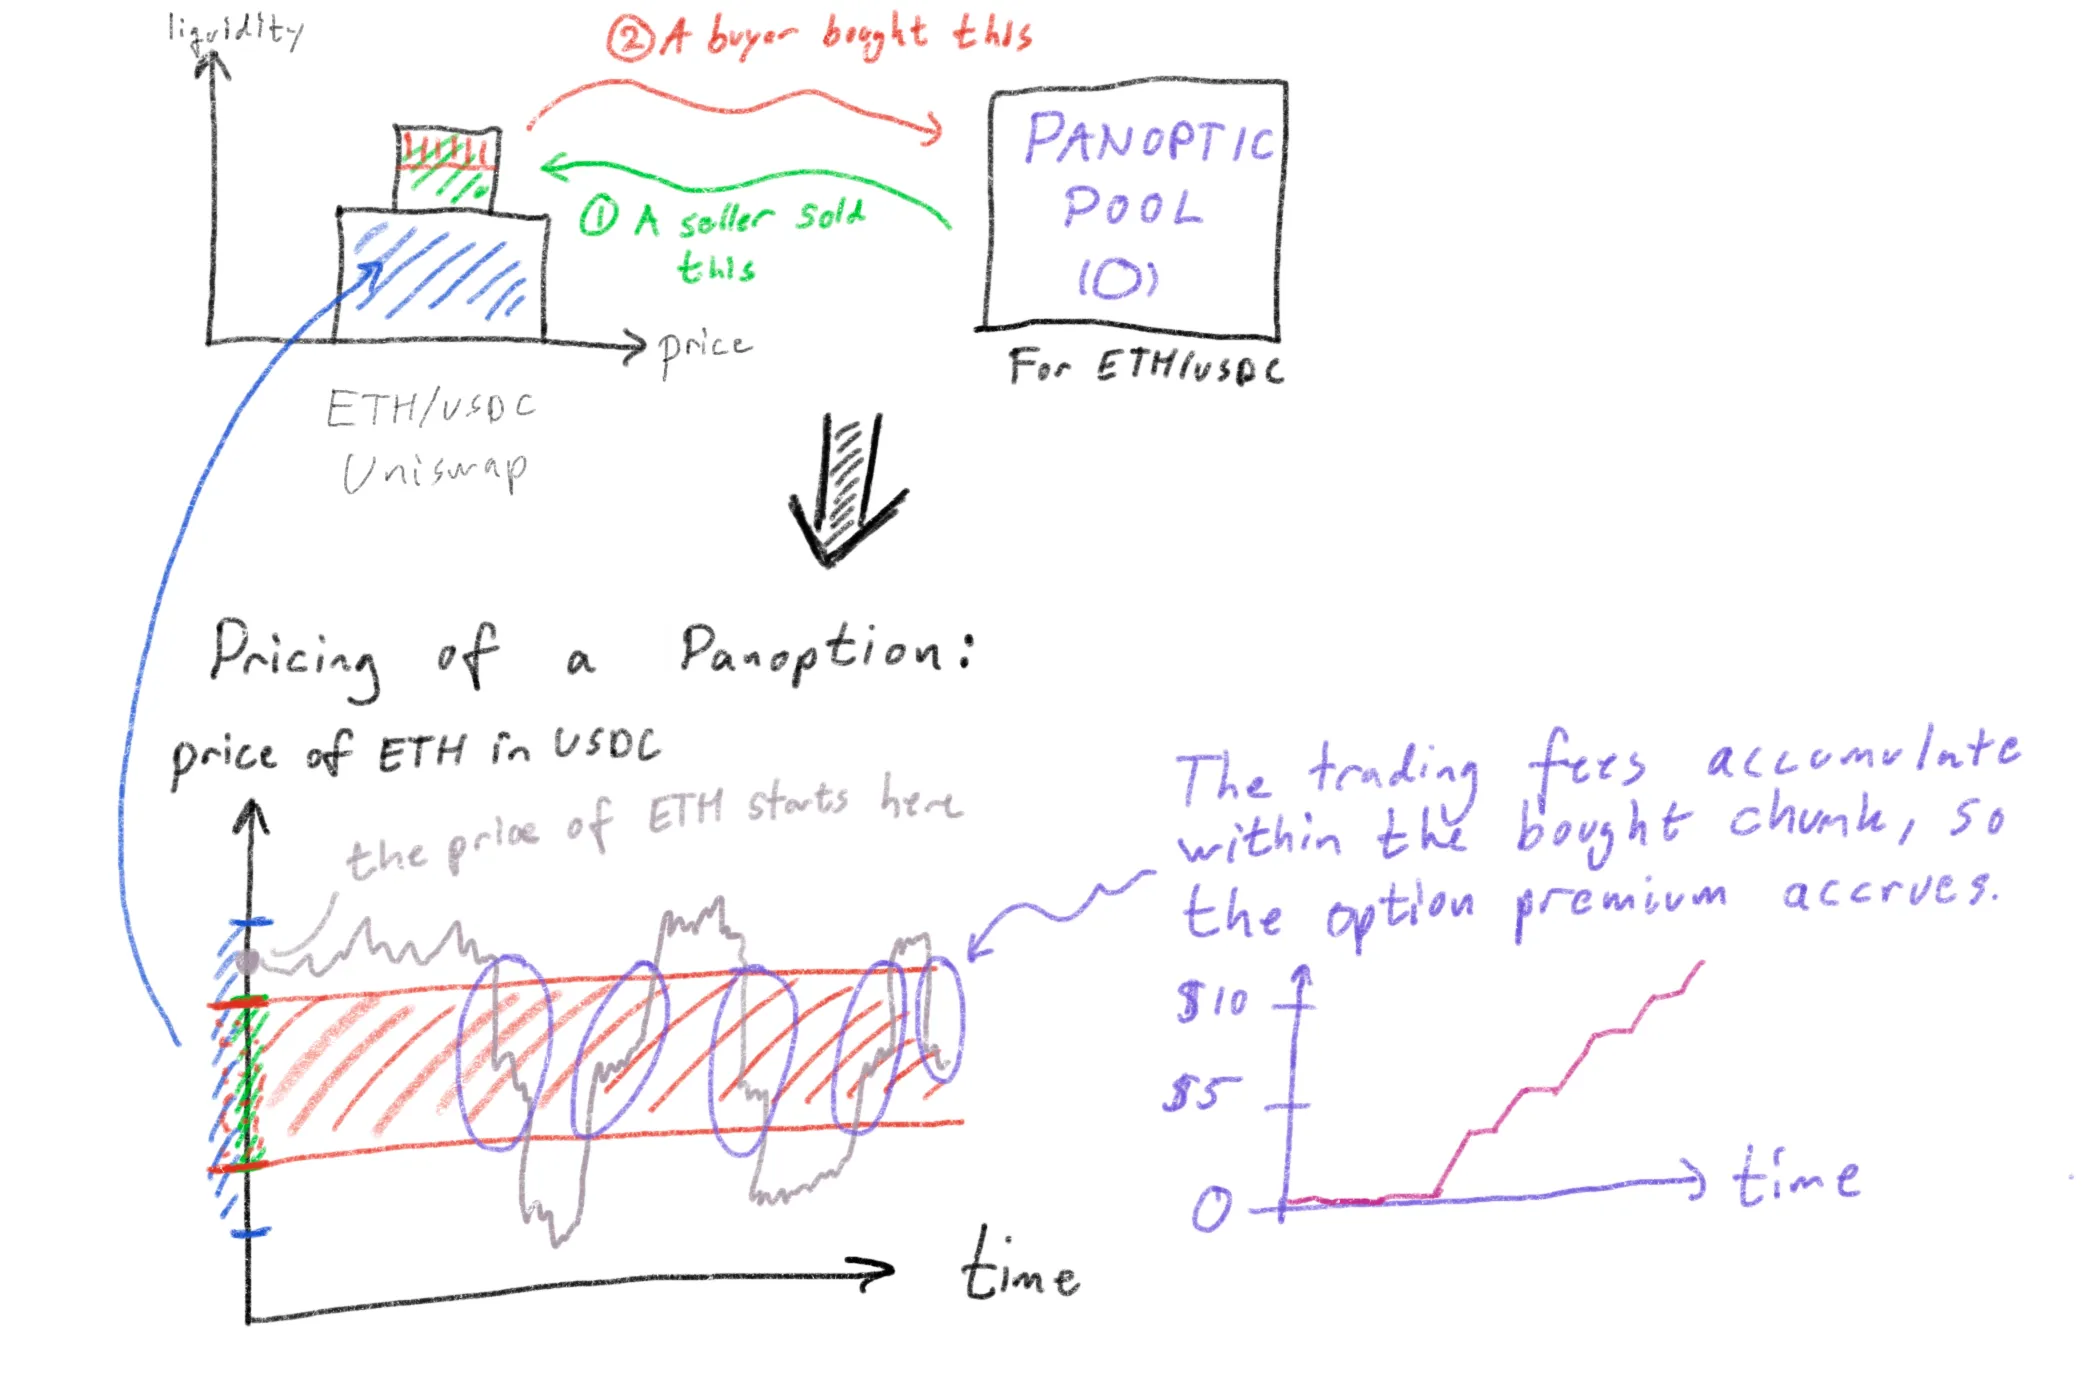 liquidity
② A buyer bought this
① A seller sold
this
PANOPTIC
POOL
(O)
For ETH/USDC
price
ETH/USDC
Uniswap
Pricing of a Panoption:
price of ETH in USDC
the price of ETH starts here
time
The trading fees accumulate
within the bought chunk, so
the option premium accrues.
$10
$5
0
time